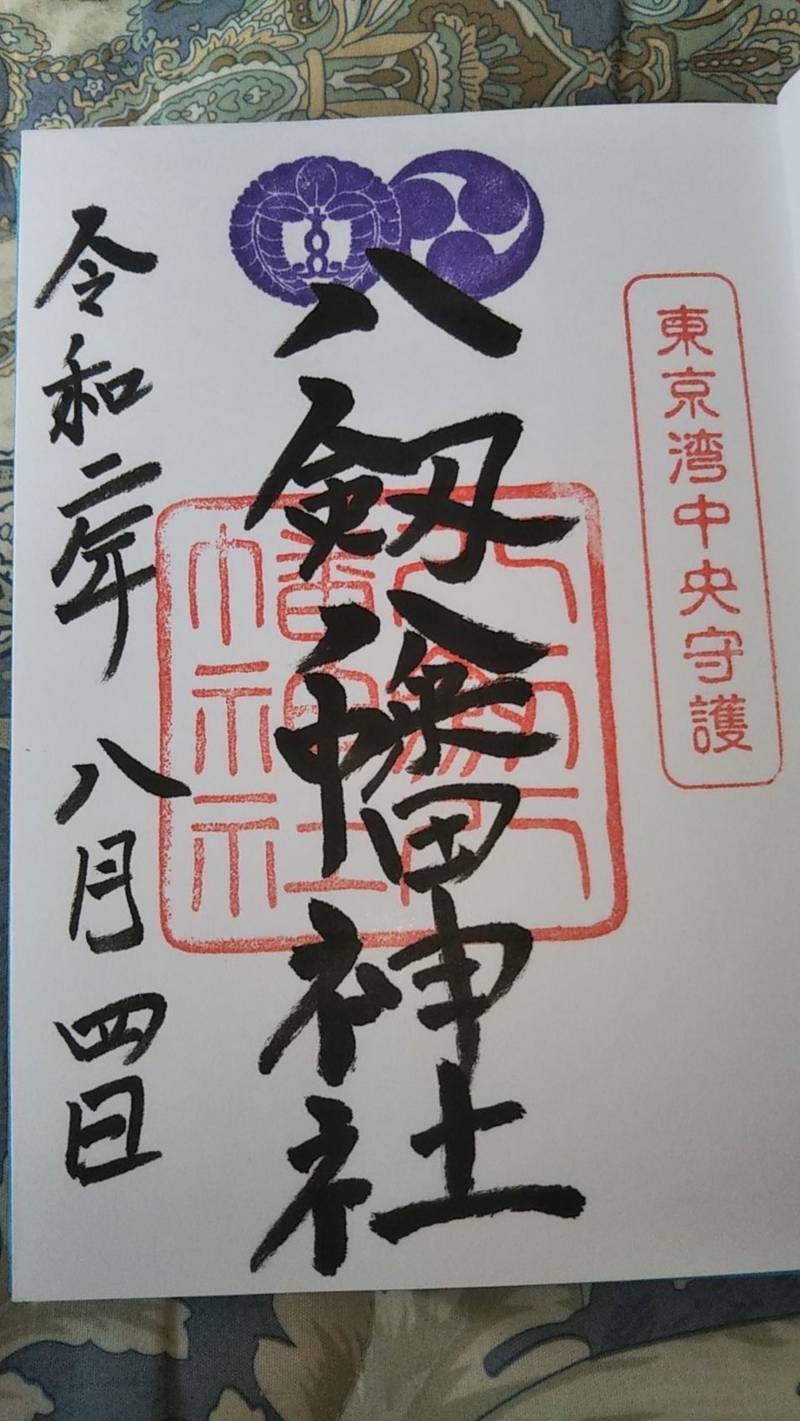 東京湾中央守護
八剱八幡神社
八剱八幡神社
令和二年 八月 四日